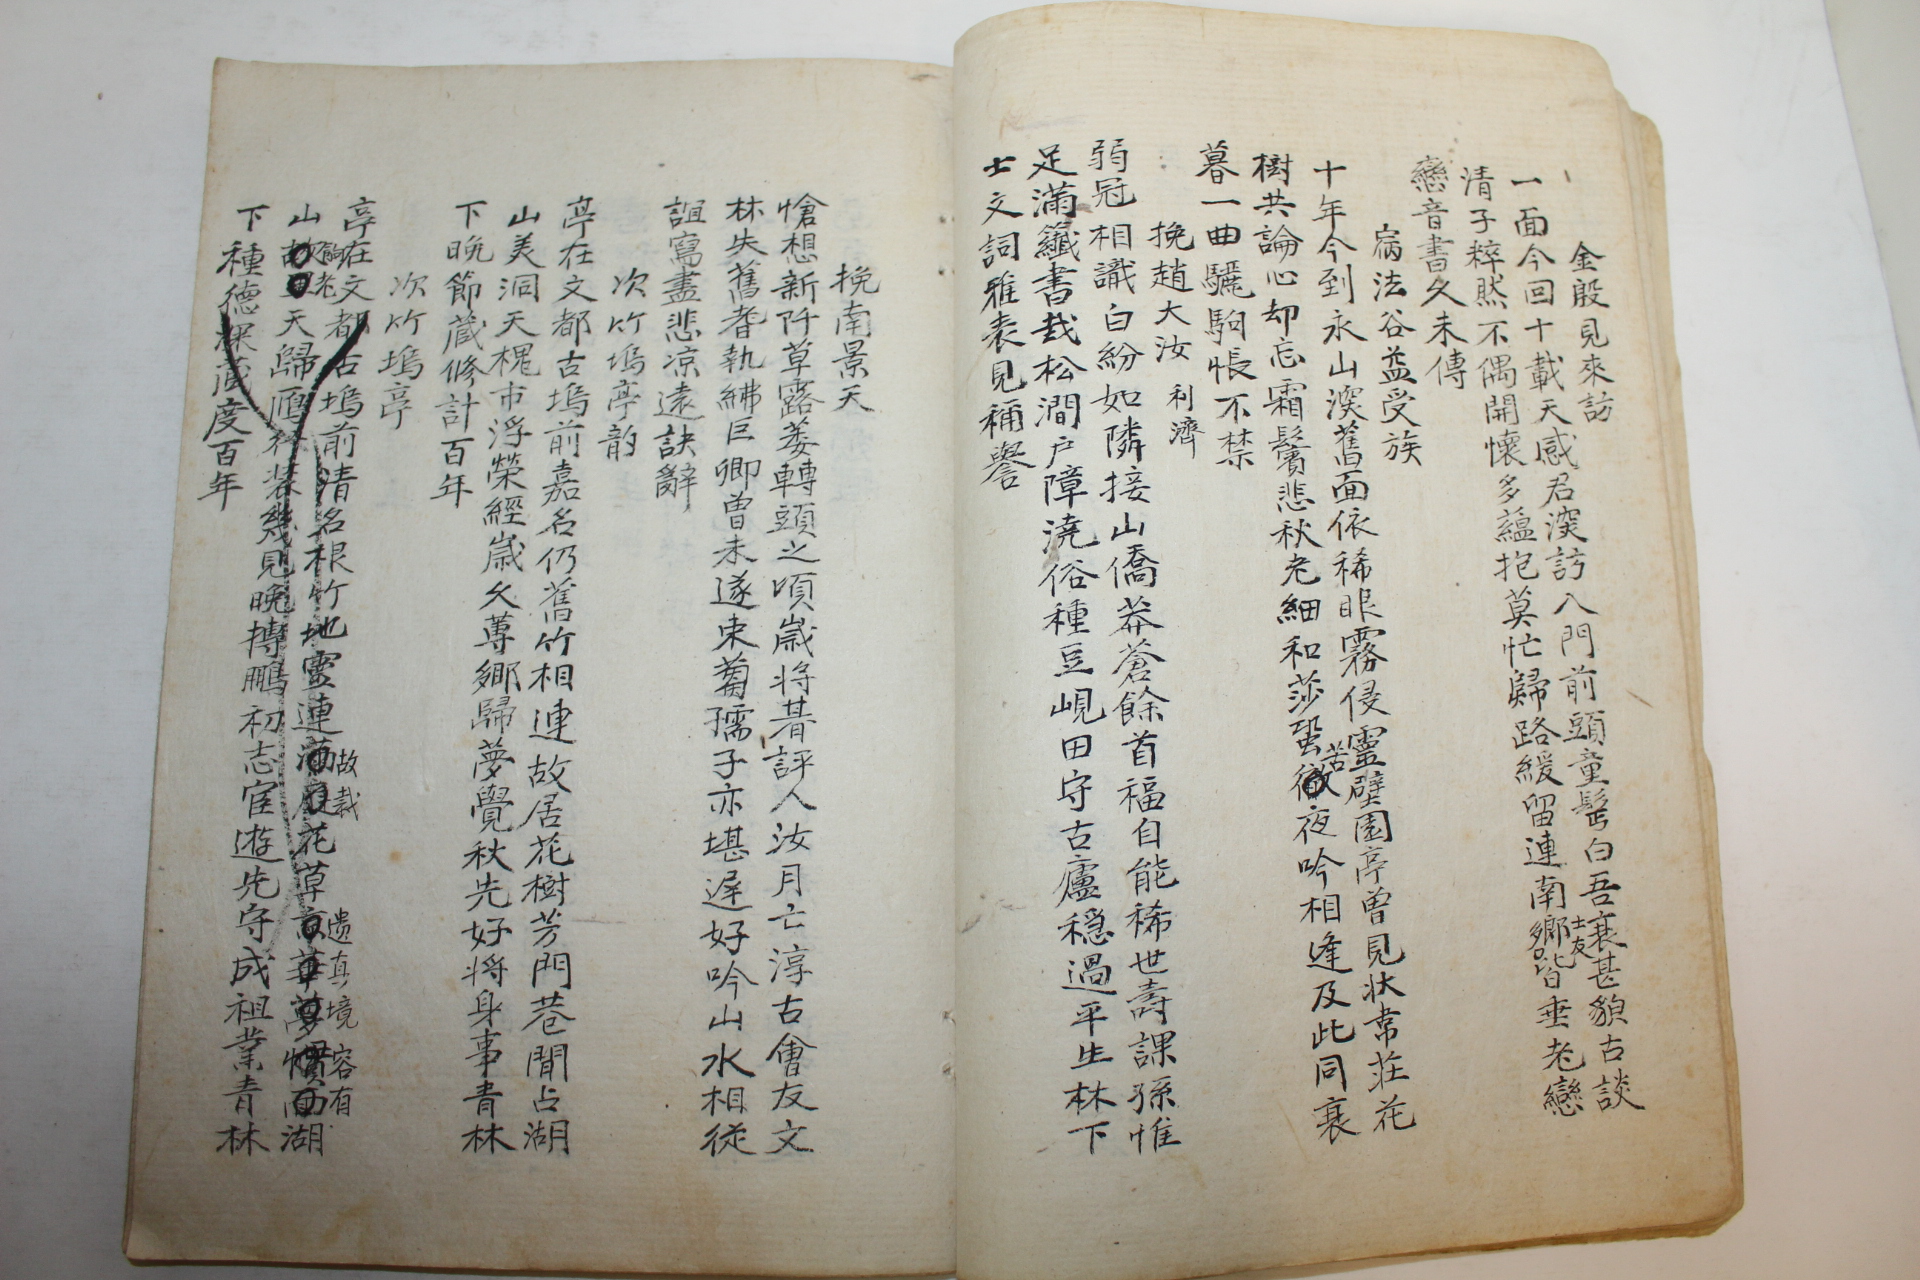 金殷見來訪
一面今回十載天感君深訪入門前頭童髩白吾衰甚貌古談
清子粹然不偶開懷多蘊抱莫忙歸路緩留連南鄉皆垂老戀
士友
戀音書久未傳
病法谷益受族
十年今到永山深舊面依稀眼霧侵靈壁園亭曾見狀韋莊花
樹共論心却忘霜鬢悲秋老細和莎蛩夜吟相逢及此同衰
苦
暮一曲驪駒悵不禁
挽趙大汝 利濟
弱冠相識白紛如隣接山僑莽蒼餘首福自能稀世壽課孫惟
足滿籯書栽松澗戶障澆俗種豆峴田守古廬穩過平生林下
士文詞雅表見稱譽
挽南景天
愴想新阡草露萎轉頭之頃歲將朞評人汝月亡淳古會友文
林失舊耆執紼巨卿曾未遂束蒭孺子亦堪遲好吟山水相從
誼寫盡悲凉遠訣辭
次竹塢亭韵
亭在文都古塢前嘉名仍舊竹相連故居花樹芳門巷閒占湖
山美洞天槐市浮榮經歲久蓴鄉歸夢覺秋先好將身事青林
下晚節蔵修計百年
次竹塢亭
亭在文都古塢前清名根竹地靈連花草湖
故栽
遺真境 容有
山天歸裝幾見晚摶鵬初志宦遊先守成祖業青林
下種德深蔵度百年